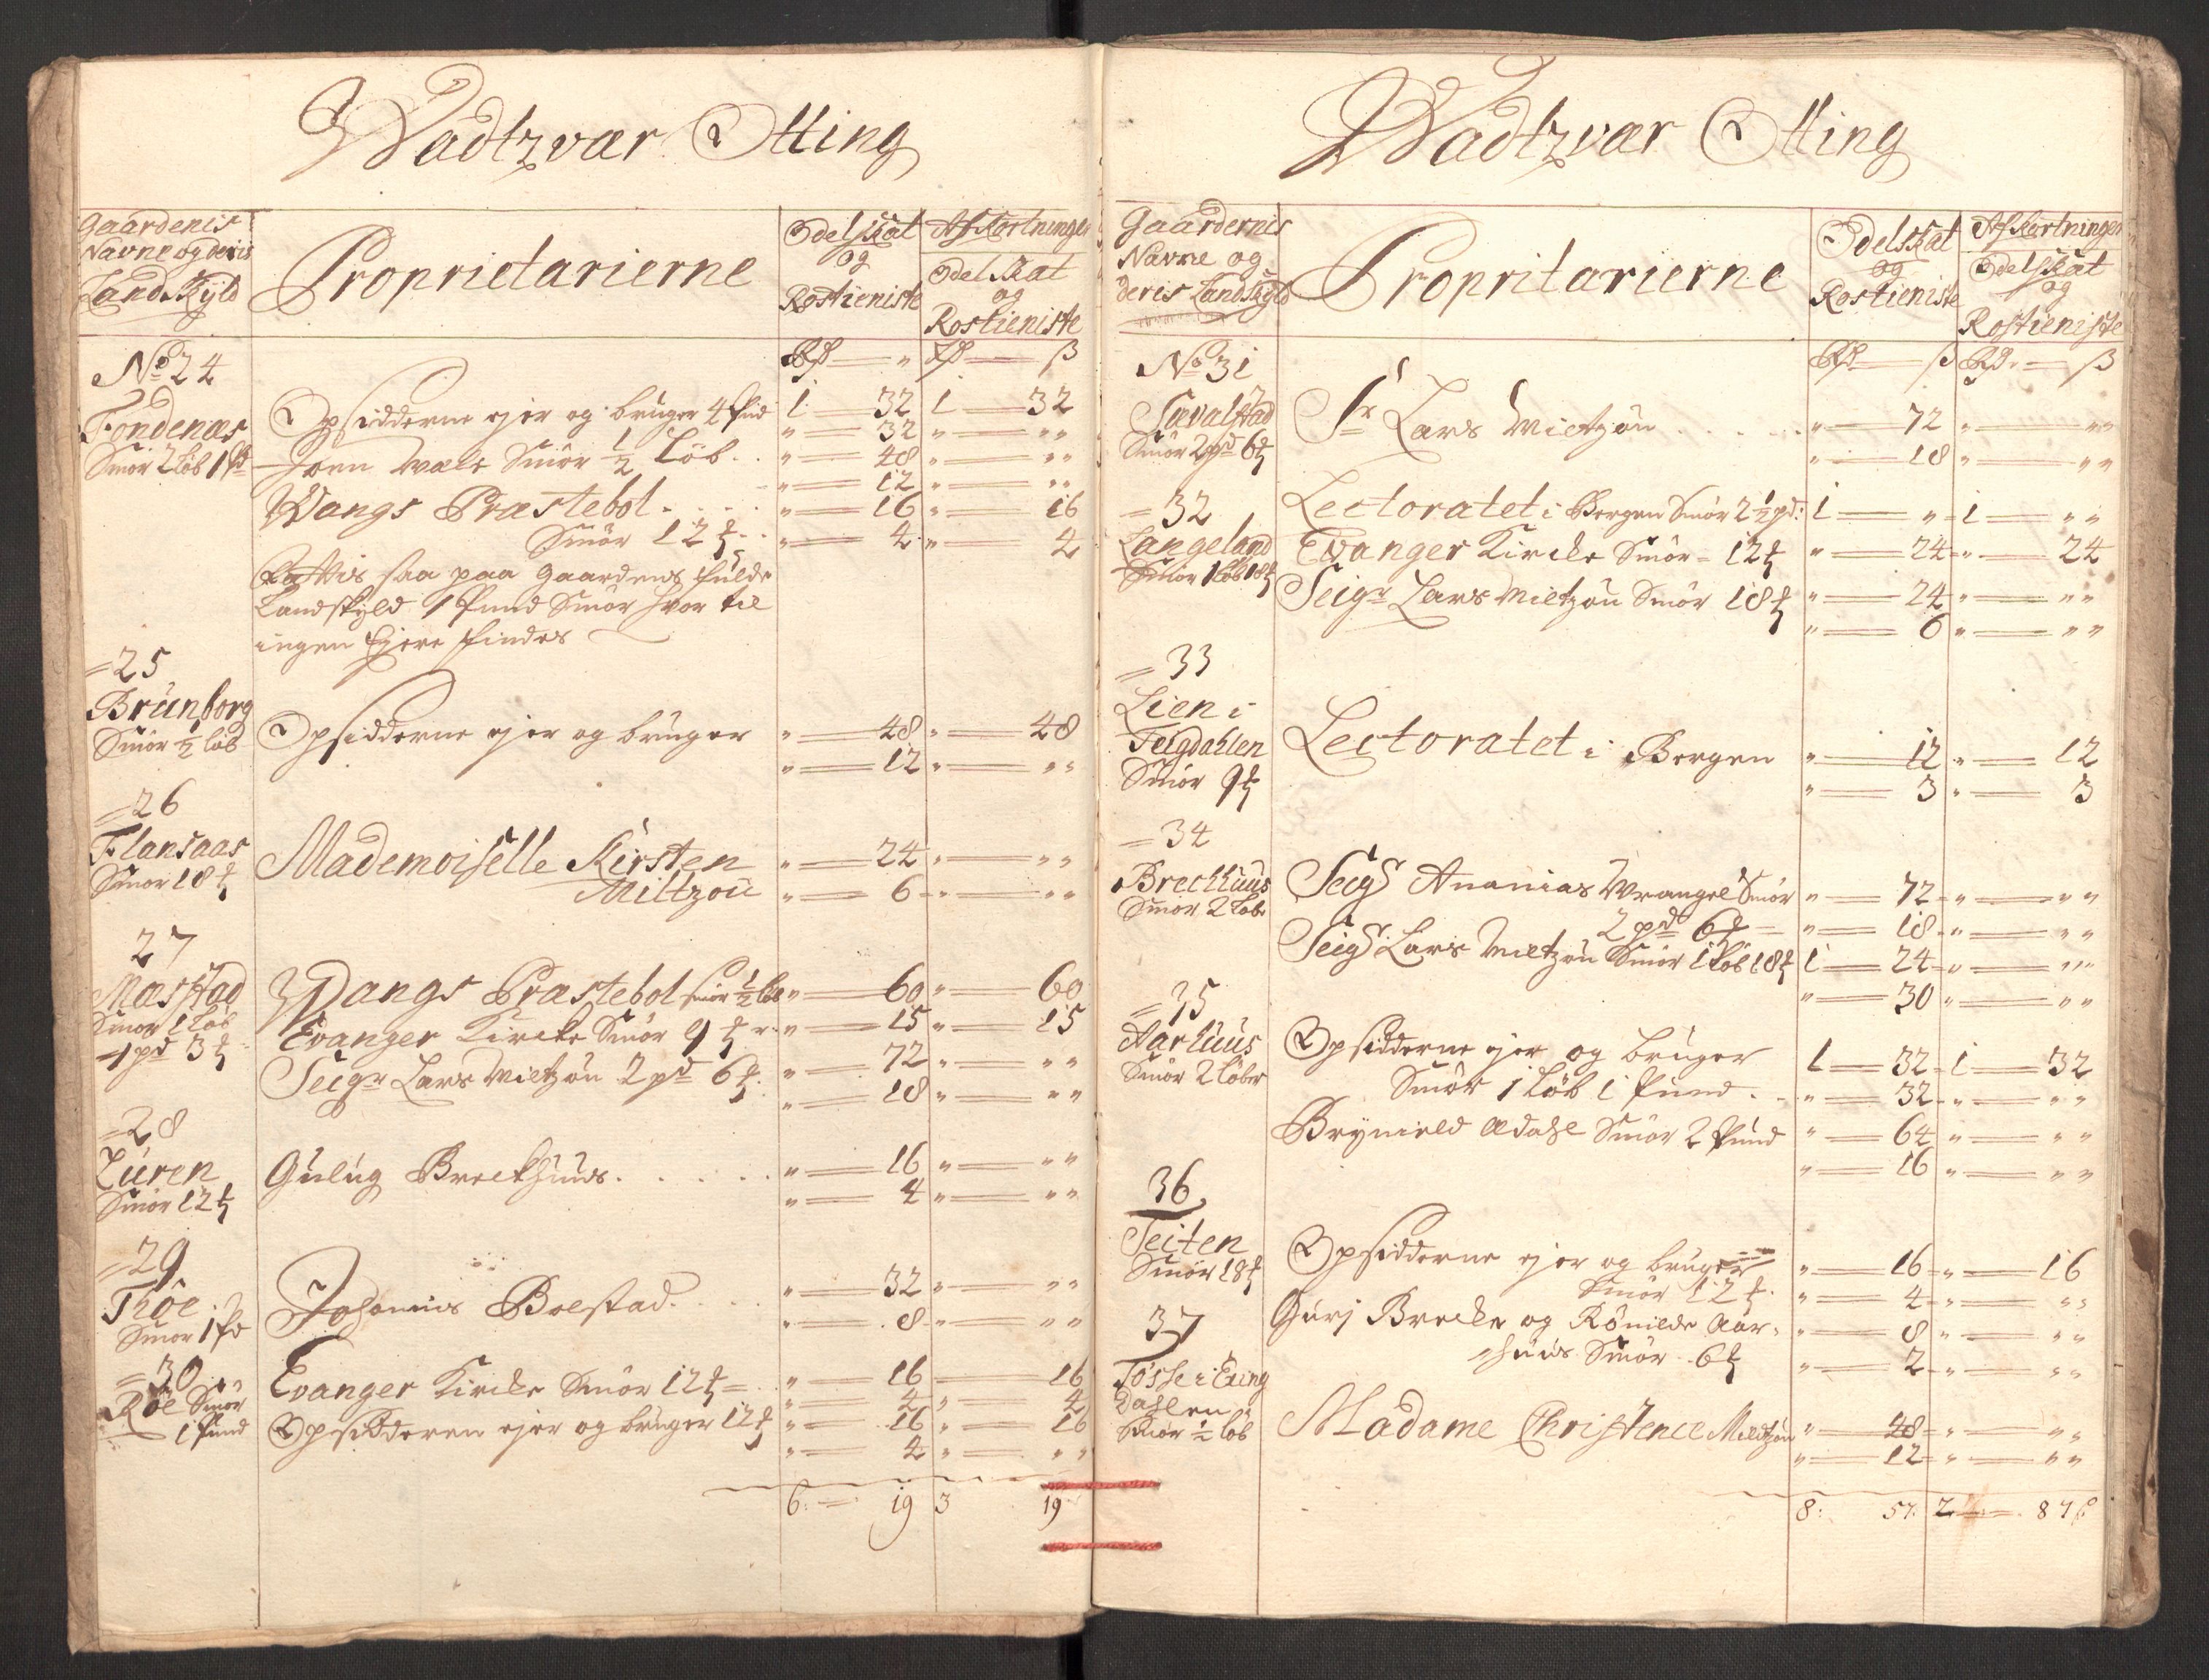 Wadtzvær Otting
Gaardenis
Navne og deris
Landskyld
Proprietarierne
Odelskat
og
Rostieniste
Afkortninger
Odelskat
og
Rostieniste
Rd — " Rd — β
No 24
Fondenæs
Smör 2 Löb 1 pd
Opsidderne ejer og bruger 4 Pund 1 — 32 1 — 32
" — 32 " — " "
Joen Wæle Smör ½ Löb . . " — 48 " — " "
" — 12 " — " "
Wangs Præstebol . . . . " — 16 " — 16
Smör 12 . . " — 4 " — 4
Rettis saa paa Gaardens fulde
Landskyld 1 Pund Smör hvor til
ingen Ejere findes
= 25
Brünborg
Smör ½ Löb
Opsidderne ejer og bruger " — 48 " — 48
" — 12 " — " "
= 26
Flansaas
Smör 18
Mademoiselle Kirsten " — 24 " — " "
Miltzou " — 6 " — " "
27
Mæstad
Smör 1 Löb
1 pd 3
Wangs Præstebol smör ½ Löb " — 60 " — 60
Evanger Kircke Smör 9 " — 15 " — 15
Seigr Lars Mietzön 2 pd 6 " — 72 " — " "
" — 18 " — " "
= 28
Lüren
Smör 12
Gulug Breckhuus . . . . . " — 16 " — " "
" — 4 " — " "
= 29
Thöe
Smör 1 Pd
Johannis Bolstad . . . . " — 32 " — " "
" — 8 " — " "
= 30
Röe Smör
1 Pund
Evanger Kircke Smör 12 = " — 16 — 16
" — 4 " — 4
Opsidderen ejer og bruger 12 " — 16 " — 16
" — 4 " — " "
6: — 19 3 19
Wadtzvær Otting
Gaardernis
Navne og
deris Landskyld
Propritarierne
Odelskat
og
Rostieniste
Afkortninger
Odelskat
og
Rostieniste
Rd — β Rd — β
No 31
Sævalstad
Smör 2 pd 6
Sr Lars Mietzön . . . . . " — 72 " — " "
" — 18 " — " "
= 32
Langeland
Smör 1 Löb 18
Lectoratet i Bergen Smör 2½ pd: 1 — " 1 — " "
Evanger Kircke Smör = 12 " — 24 " — 24
Seigr Lars Mietzön Smör 18 " — 24 " — " "
" — 6 " — " "
= 33
Lien i
Teigdahlen
Smör 9
Lectoratet i Bergen " — 12 " — 12
" — 3 " — 3
= 34
Breckuus
Smör 2 Löb
Seigr Ananias Wrangel Smör " — 72 " — " "
2 pd 6 — " — 18 " — " "
Seigr Lars Mietzön Smör 1 Löb 18 1 — 24 " — " "
" — 30 " — " "
= 35
Aarhuus
Smör 2 Löber
Opsidderne ejer og bruger 1 — 32 1 — 32
Smör 1 Löb 1 Pund . . " — 32 " — " "
Brynield Ædahl Smör 2 Pund " — 64 " — " "
" — 16 " — " "
36
Teiten
Smör 18
Opsidderne ejer og bruger " — 16 " — 16
Smör 12 . " — 4 " — " "
Guri Brecke og Rönilde Aar= " — 8 " — " "
huus Smör 6 " — 2 " — " "
37
Tösse i Exing
Dahlen
Smör ½ Löb
Madame Christence Mietzön " — 48 " — " "
" — 12 " — " "
8: 57: 2 — 87 β